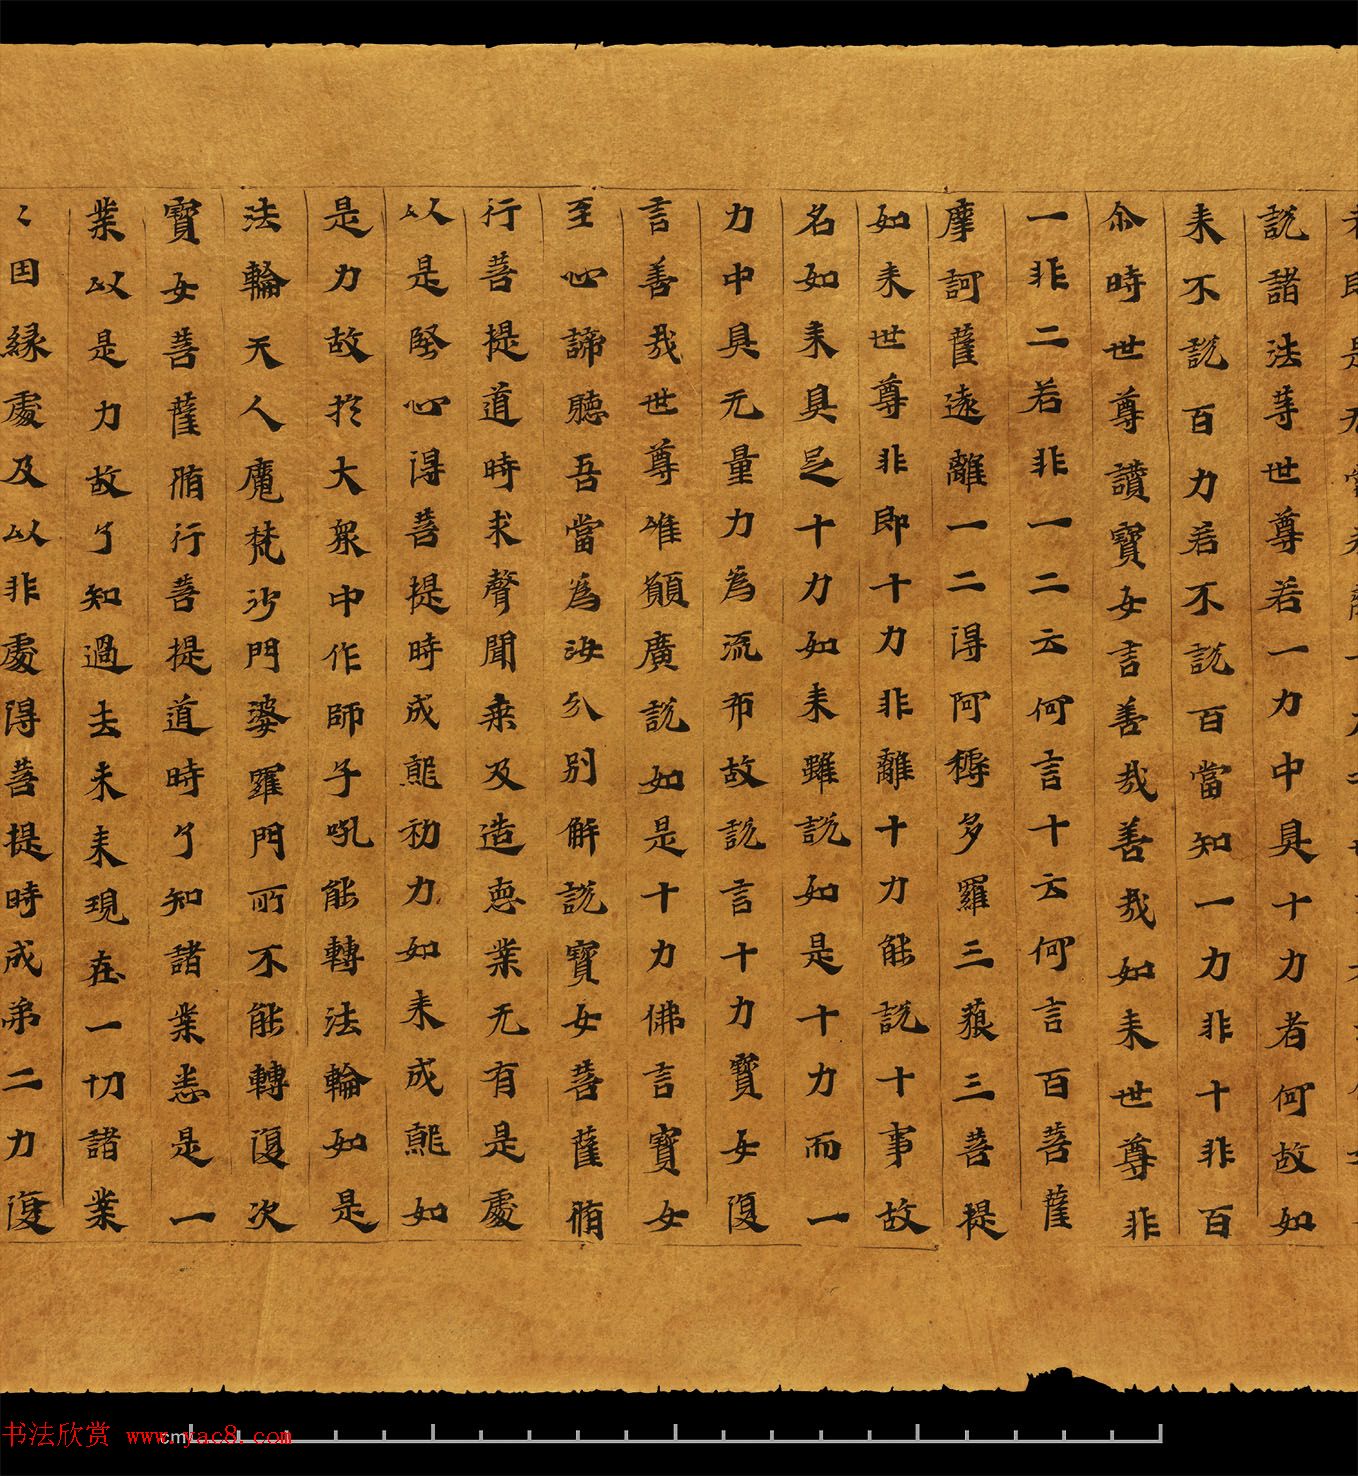 説諸法等世尊若一力中具十力者何故如
来不説百力若不説百當知一力非十非百
尒時世尊讃寶女言善哉善哉如来世尊非
一非二若非一二云何言十云何言百菩薩
摩訶薩遠離一二得阿耨多羅三藐三菩提
如来世尊非即十力非離十力能説十事故
名如来具足十力如来雖説如是十力而一
力中具无量力為流布故説言十力寶女復
言善哉世尊唯願廣説如是十力佛言寶女
至心諦聽吾當為汝分別解説寶女菩薩脩
行菩提道時求聲聞乗及造惡業无有是處
以是堅心得菩提時成就初力如来成就如
是力故於大衆中作師子吼能轉法輪如是
法輪天人魔梵沙門婆羅門所不能轉復次
寶女菩薩脩行菩提道時了知諸業悉是一
業以是力故了知過去未来現在一切諸業
〻因縁處及以非處得菩提時成弟二力復
书法欣赏 www.yac8.com
cm